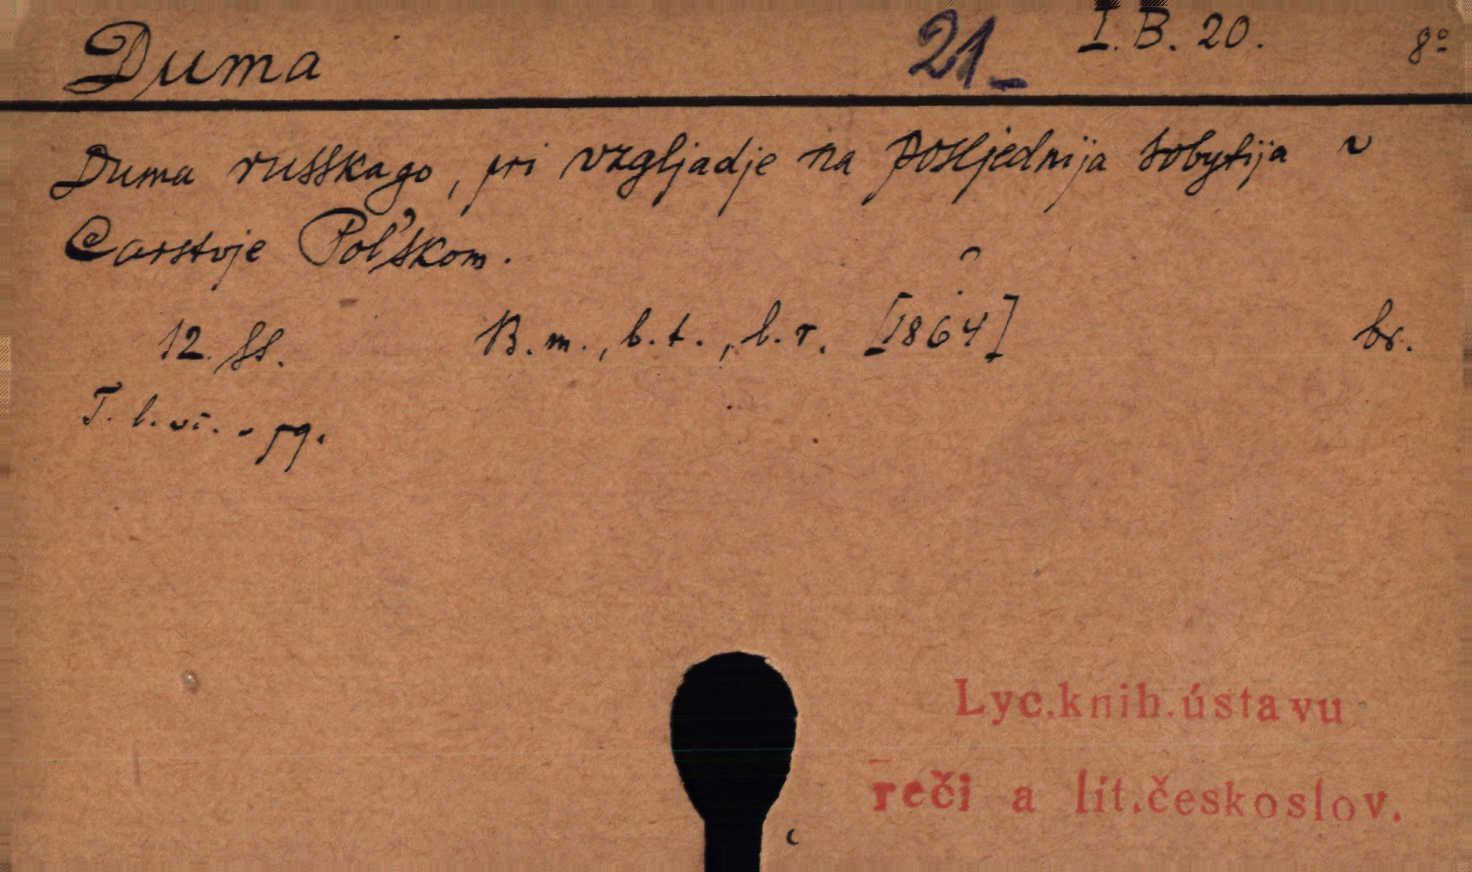 Duma 21_ I.B.20. 8º
Duma russkago, pri vzgljadje na posljednija sobytija v
Carstvje Pol'skom.
12. ss. B.m., b.t., b.r. [1864] br.
Lyc.knih.ústavu
reči a lit.českoslov.